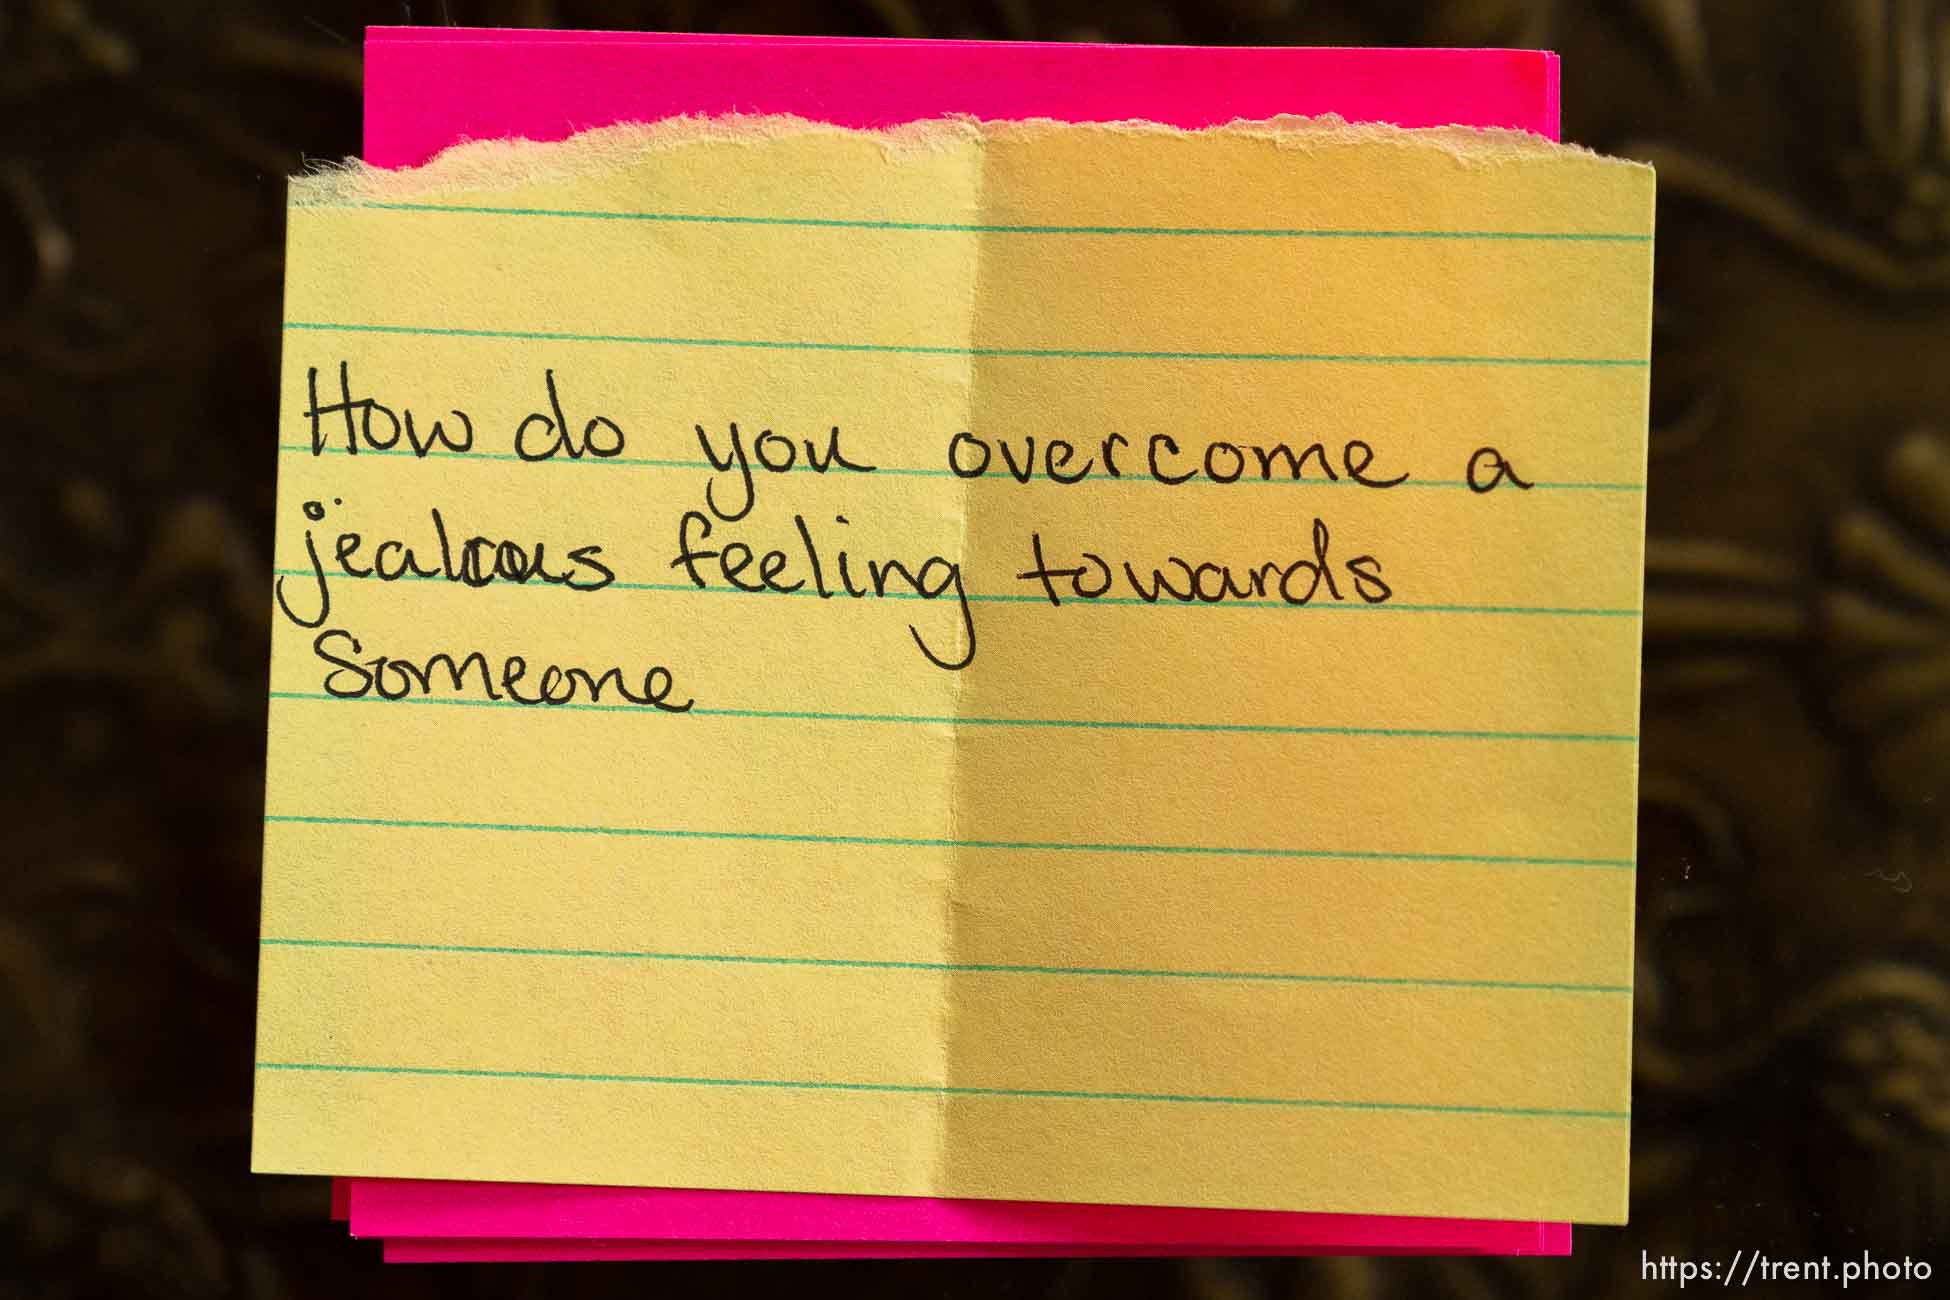 How do you overcome a
jealous feeling towards
Someone
https://trent.photo